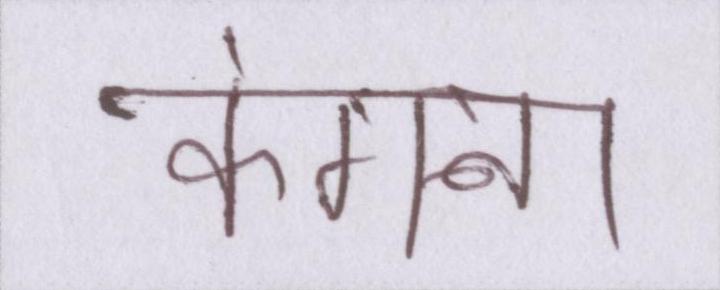 कंगना